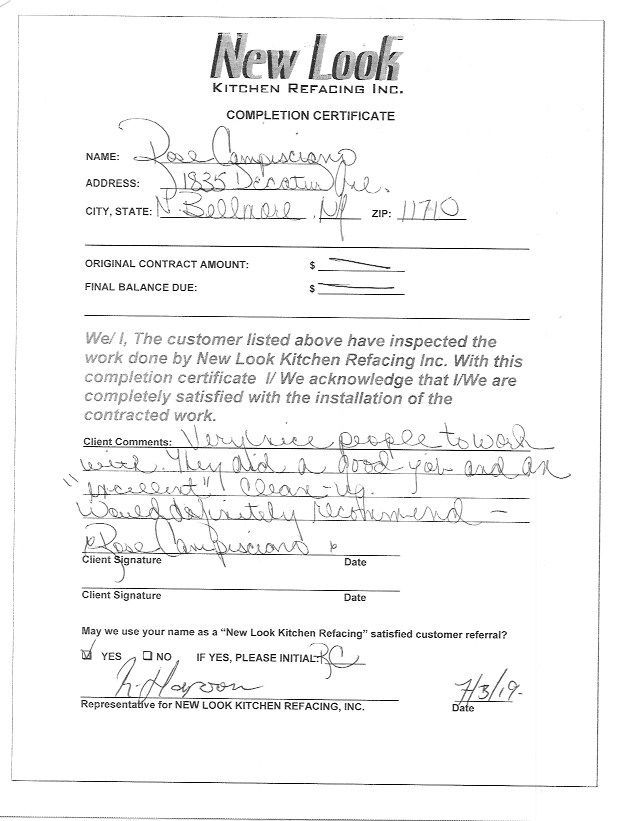 New Look
KITCHEN REFACING INC.
COMPLETION CERTIFICATE
NAME: Rose Campisciano
ADDRESS: 1835 Decatur Ave.
CITY, STATE: N. Bellmore, NY ZIP: 11710
ORIGINAL CONTRACT AMOUNT: $
FINAL BALANCE DUE: $
We/ I, The customer listed above have inspected the
work done by New Look Kitchen Refacing Inc. With this
completion certificate I/ We acknowledge that I/We are
completely satisfied with the installation of the
contracted work.
Client Comments: Very nice people to work
with. They did a good job and an
"excellent" clean-up.
Would definitely recommend -
Rose Campisciano
Client Signature Date
Client Signature Date
May we use your name as a "New Look Kitchen Refacing" satisfied customer referral?
YES NO IF YES, PLEASE INITIAL: RC
7/3/19.
Representative for NEW LOOK KITCHEN REFACING, INC. Date